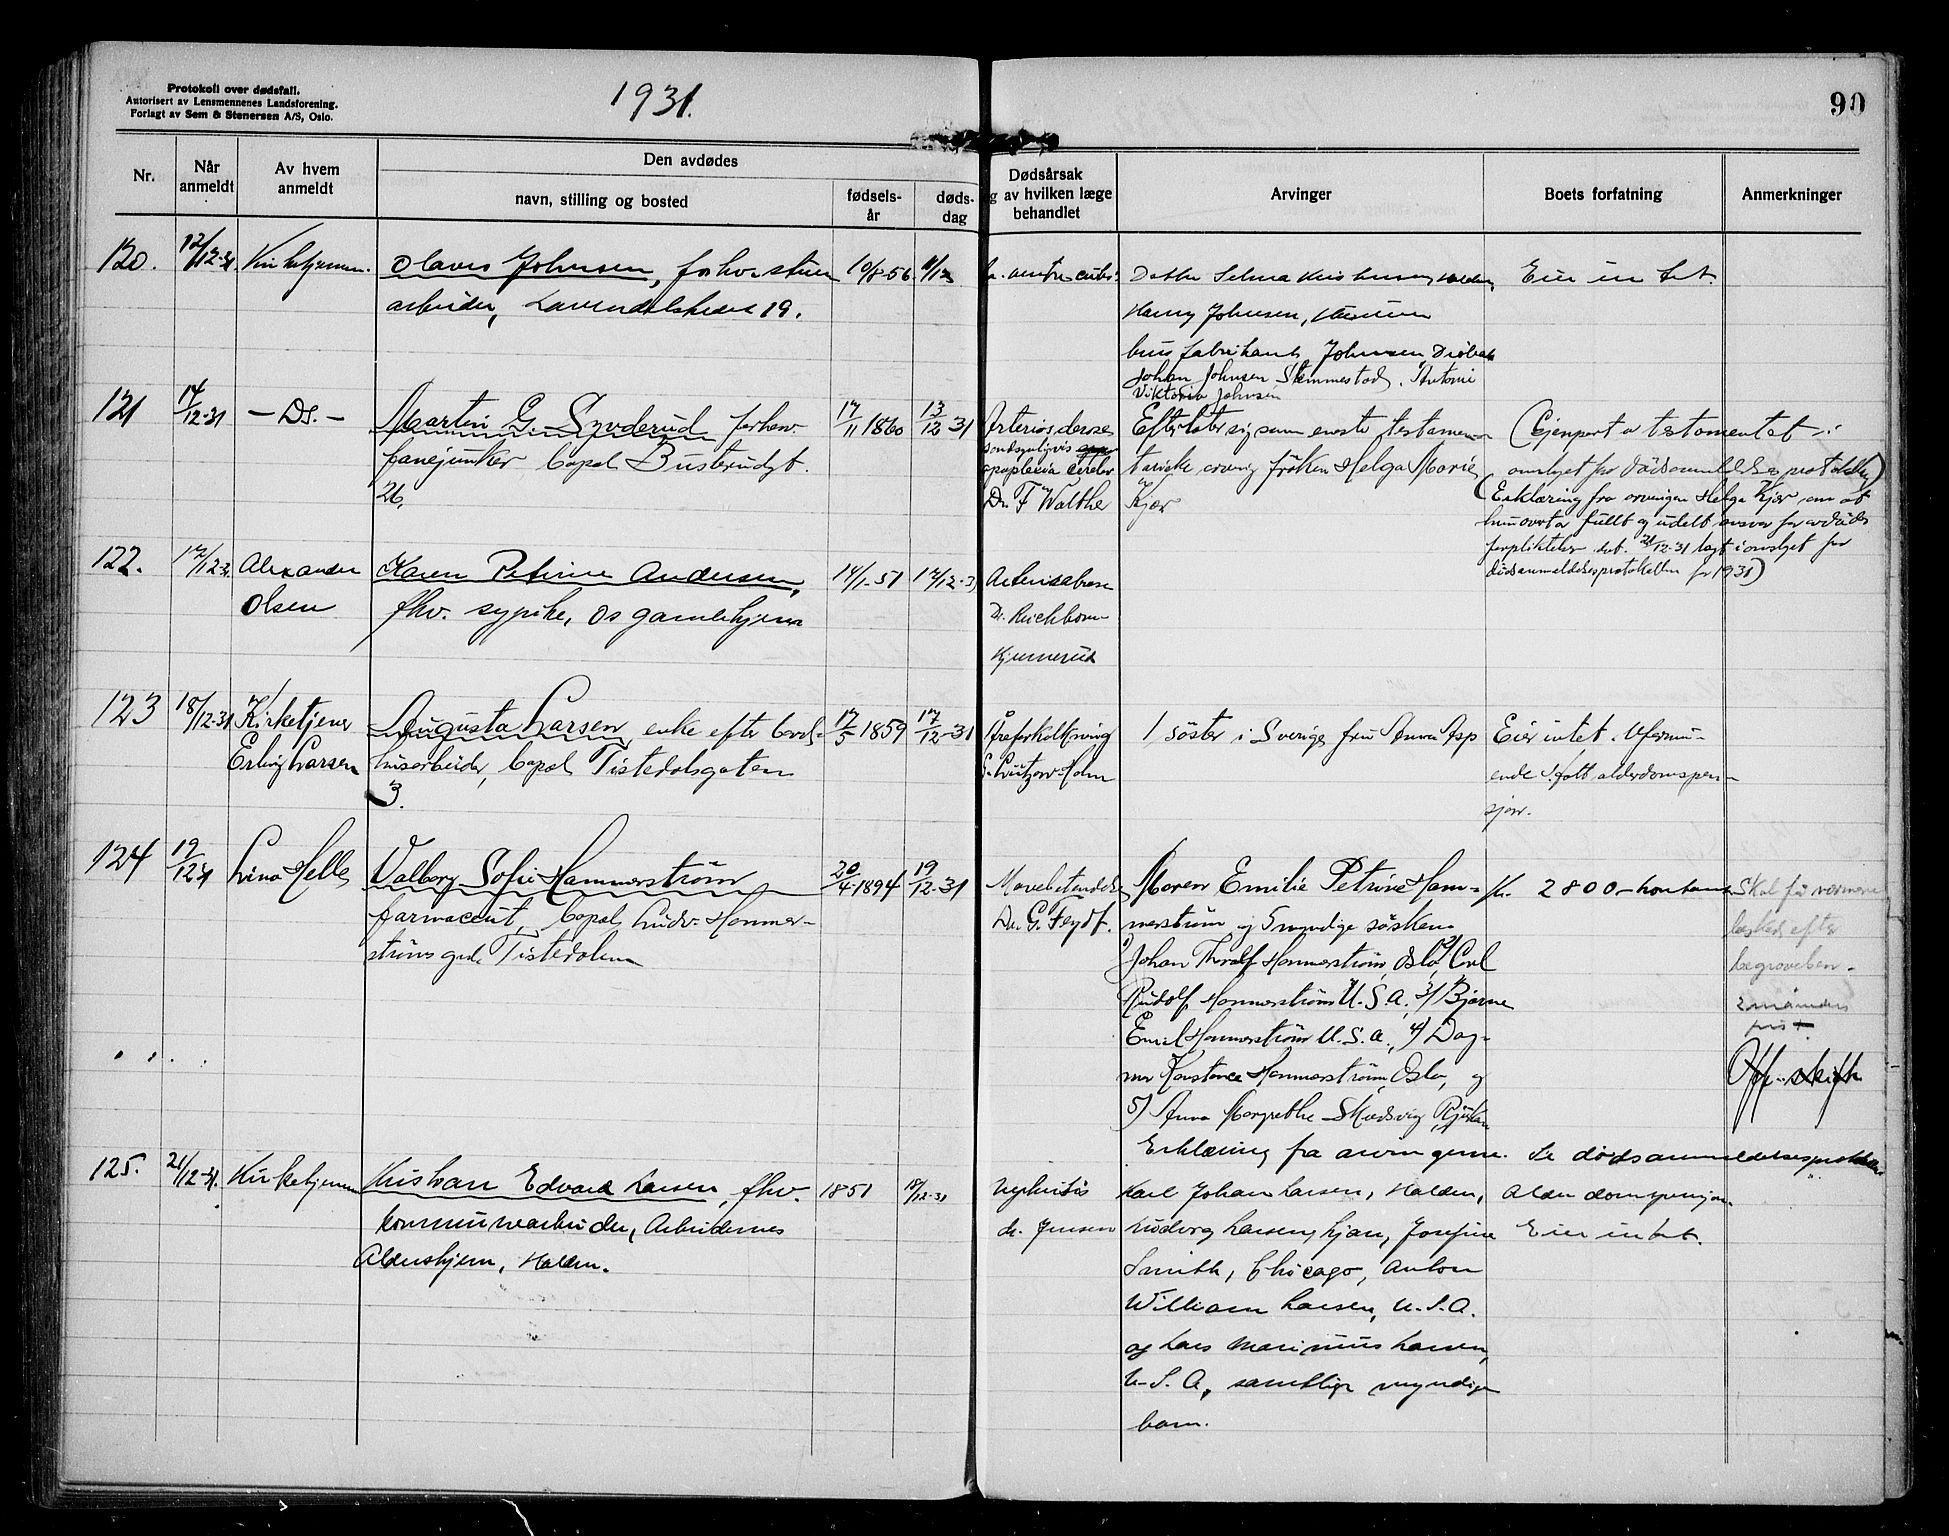 Protokoll over dødsfall.
Autorisert av Lensmennenes Landsforening.
Forlagt av Sem & Stenersen A/S, Oslo.
1931.
90
Nr.
Når anmeldt
Av hvem anmeldt
Den avdødes
navn, stilling og bosted
fødsels-år
døds-dag
Dødsårsak
og av hvilken læge
behandlet
Arvinger
Boets forfatning
Anmerkninger
120.
12/12-31
Kirketjenern.
Olaves Johnsen, forhv.
arbeider, 19.
10/8-56
11/12
Datter Selma Halden,
Harry Johnsen,
Johnsen, Drøbak
Johan Johnsen, Stemmestad. Antoni
Viktoria Johnsen
Eier intet.
121
14/12-31
- Ds. -
Martin G. Synderud forhenv.
fanejunker, Busterudgt.
26.
17/11 1860
13/12 31
Arteriosclerose
sandsynligvis
apoplexia cerebr
Dr. F Walther
Efterlater sig som eneste testamen-
tariske arving frøken Helga Marie
Kjær
(Gjenpart av testamentet
omslyet for dødsanmeldelsesprotokollen)
(Erklæring fra arvingen Helga Kjær om at
hun overtar fullt og udelt ansvar for avdødes
forpliktelser dat. 21/12-31 lagt i omslyet for
dødsanmeldelsesprotokollen for 1931)
122.
17/12-31
Alexander
Olsen
Karen Petrine Andersen,
fhv. sypike, Os gamlehjem
14/1-51
17/12-31
Dr. Reichborn-
Kjennerud
123
18/12-31
Kirketjener
Erling Larsen
Augusta Larsen, enke efter
husarbeider, Tistedalsgaten
3.
17/5 1859
17/12-31
Åreforkalkning
Lützow Holm
1 søster i Sverige fru Anna Asp
Eier intet. Uformu-
ende. alderdomspen-
sjon.
124
19/12 31
Lina Helle
Valborg Sofie Hammerstrøm
farmaceut, Ludv. Hammer-
strøms gd. Tistedalen
20/4 1894
19/12-31
Dr. G. Feydt.
Moren Emilie Petrine Ham-
merstrøm og 5 myndige søsken
1) Johan Thoralf Hammerstrøm, Oslo, 2) Carl
Rudolf Hammerstrøm U.S.A., 3) Bjarne
Emil Hammerstrøm U.S.A., 4) Dag-
mar Konstance Hammerstrøm, Oslo, og
5) Anna Margrethe Skodsvig, Rjukan
Erklæring fra arvingerne. Se dødsanmeldelsesprotokollen
Kr. 2800- kontant
Skal få nærmere
beskjed efter
begravelsen.
2 måneders
frist
Off. skifte
125.
21/12-31.
Kirketjenern
Kristian Edvard Larsen, fhv.
kommunearbeider, Arbeidernes
Aldershjem, Halden.
1851
18/12-31
Nephritis
dr. Jensen
Karl Johan Larsen, Halden,
Ludvig Larsen, hjem, Josefine
Smith, Chicago, Anton
William Larsen, U.S.A.
og Lars Marinius Larsen,
U.S.A., samtlige myndige
barn.
Alderdomspensjon.
Eier intet.